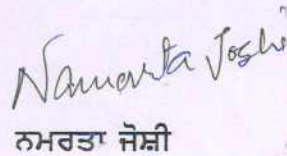 Namarta Joshi
ਨਮਰਤਾ ਜੋਸ਼ੀ